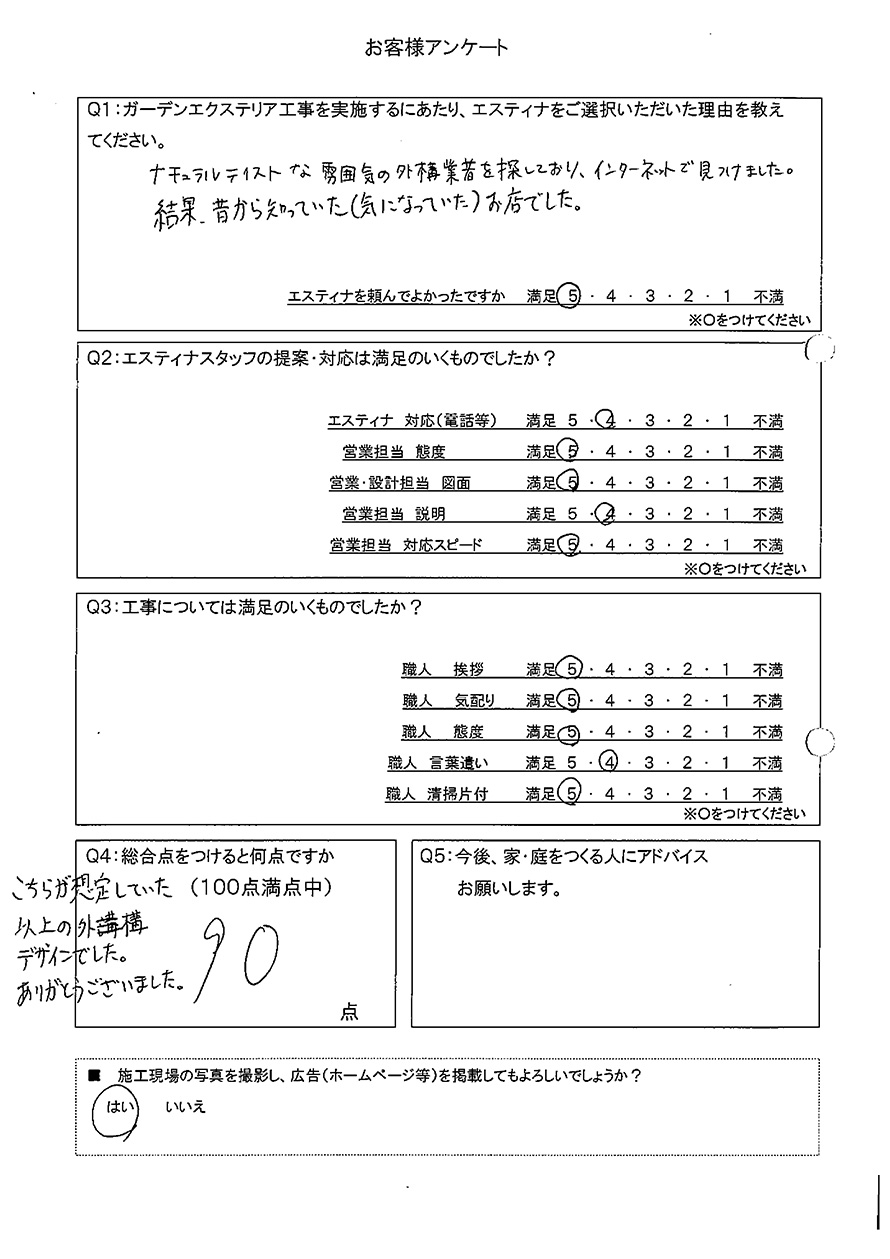 お客様アンケート
Q1:ガーデンエクステリア工事を実施するにあたり、エスティナをご選択いただいた理由を教え
てください。
ナチュラルテイストな 雰囲気の外構業者を探しており、インターネットで見つけました。
結果、昔から知っていた(気になっていた)お店でした。
エスティナを頼んでよかったですか 満足 5 ・ 4 ・ 3 ・ 2 ・ 1 不満
※○をつけてください
Q2:エスティナスタッフの提案・対応は満足のいくものでしたか?
エスティナ 対応(電話等) 満足 5 ・ 4 ・ 3 ・ 2 ・ 1 不満
営業担当 態度 満足 5 ・ 4 ・ 3 ・ 2 ・ 1 不満
営業・設計担当 図面 満足 5 ・ 4 ・ 3 ・ 2 ・ 1 不満
営業担当 説明 満足 5 ・ 4 ・ 3 ・ 2 ・ 1 不満
営業担当 対応スピード 満足 5 ・ 4 ・ 3 ・ 2 ・ 1 不満
※○をつけてください
Q3:工事については満足のいくものでしたか?
職人 挨拶 満足 5 ・ 4 ・ 3 ・ 2 ・ 1 不満
職人 気配り 満足 5 ・ 4 ・ 3 ・ 2 ・ 1 不満
職人 態度 満足 5 ・ 4 ・ 3 ・ 2 ・ 1 不満
職人 言葉遣い 満足 5 ・ 4 ・ 3 ・ 2 ・ 1 不満
職人 清掃片付 満足 5 ・ 4 ・ 3 ・ 2 ・ 1 不満
※○をつけてください
Q4:総合点をつけると何点ですか
(100点満点中)
こちらが想定していた
以上の外構
デザインでした。
ありがとうございました。
90
点
Q5:今後、家・庭をつくる人にアドバイス
お願いします。
■ 施工現場の写真を撮影し、広告(ホームページ等)を掲載してもよろしいでしょうか?
はい いいえ